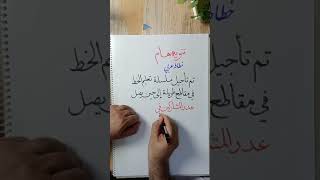 تنويه هام
خطاط عربي
تم تأجيل سلسلة تعلم الخط
في مقاطع طويلة إلى حين يصل
عدد المشتركين في